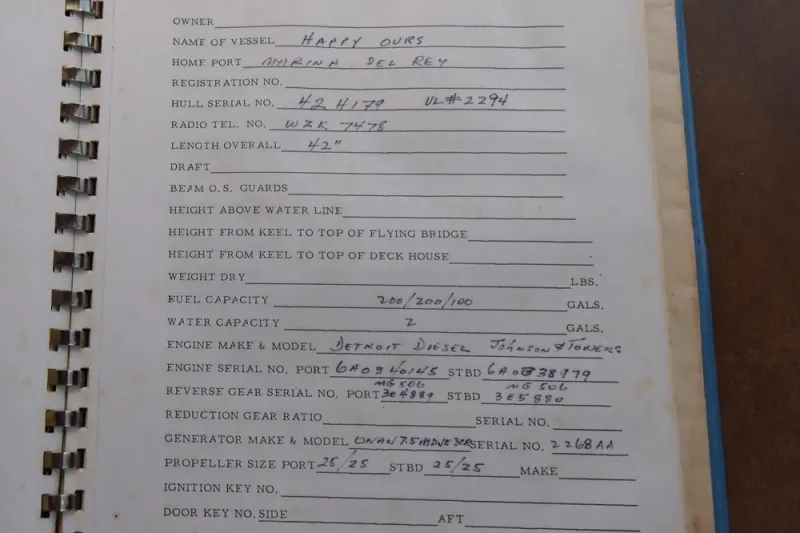 OWNER
NAME OF VESSEL HAPPY OURS
HOME PORT MARINA DEL REY
REGISTRATION NO.
HULL SERIAL NO. 42 4179 UL#2294
RADIO TEL. NO. WZK 7478
LENGTH OVERALL 42"
DRAFT
BEAM O.S. GUARDS
HEIGHT ABOVE WATER LINE
HEIGHT FROM KEEL TO TOP OF FLYING BRIDGE
HEIGHT FROM KEEL TO TOP OF DECK HOUSE
WEIGHT DRY LBS.
FUEL CAPACITY 200/200/100 GALS.
WATER CAPACITY 2 GALS.
ENGINE MAKE & MODEL DETROIT DIESEL JOHNSON & TOWERS
ENGINE SERIAL NO. PORT 6A0340145 STBD
MG 506 MG 506
REVERSE GEAR SERIAL NO. PORT 3E4889 STBD 3E5880
REDUCTION GEAR RATIO SERIAL NO.
GENERATOR MAKE & MODEL ONAN 7.5 SERIAL NO. 2268AA
PROPELLER SIZE PORT 25/25 STBD 25/25 MAKE
IGNITION KEY NO.
DOOR KEY NO. SIDE AFT